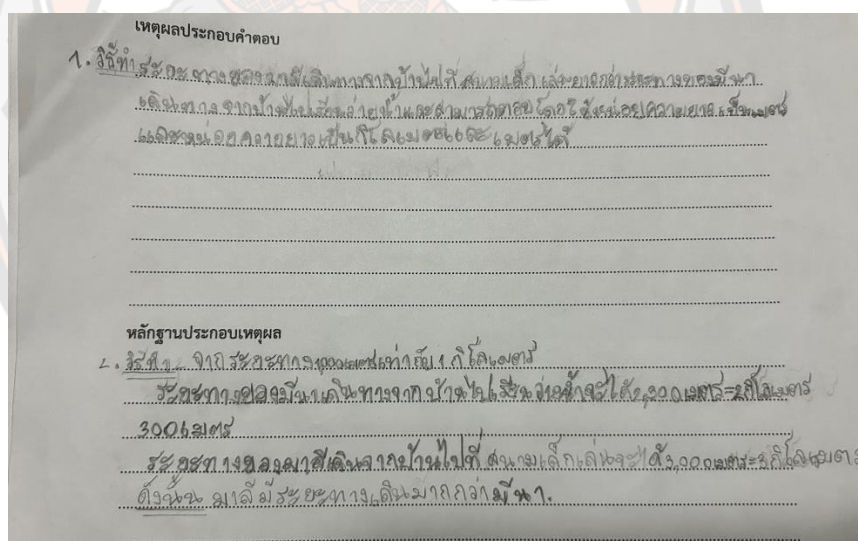 เหตุผลประกอบคำตอบ
1. วิธีทำ ระยะทางของมาลีเดินทางจากบ้านไปที่สนามเด็กเล่นยาวกว่าระยะทางของมีนา
เดินทางจากบ้านไปเรียนว่ายน้ำและสามารถตอบโดยใช้หน่วยความยาวเป็นเมตร
และหน่วยความยาวเป็นกิโลเมตรและเมตรได้
หลักฐานประกอบเหตุผล
2. วิธีทำ จากระยะทาง 1000เมตรเท่ากับ 1 กิโลเมตร
ระยะทางของมีนาเดินทางจากบ้านไปเรียนว่ายน้ำจะได้2,300เมตร=2กิโลเมตร
300เมตร
ระยะทางของมาลีเดินจากบ้านไปที่สนามเด็กเล่นจะได้3,000เมตร=3กิโลเมตร
ดังนั้น มาลีมีระยะทางเดินมากกว่ามีนา.